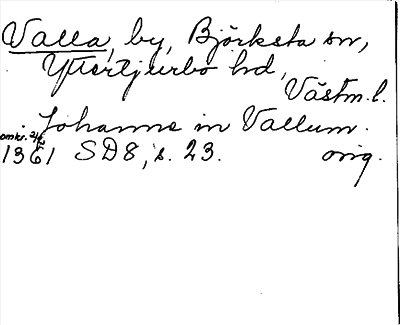 Valla, by, Björksta sn,
Yttertjurbo hd,
Västm. l.
Johanne in Vallum.
omkr. 2/2
1361 SD8, s. 23. orig.